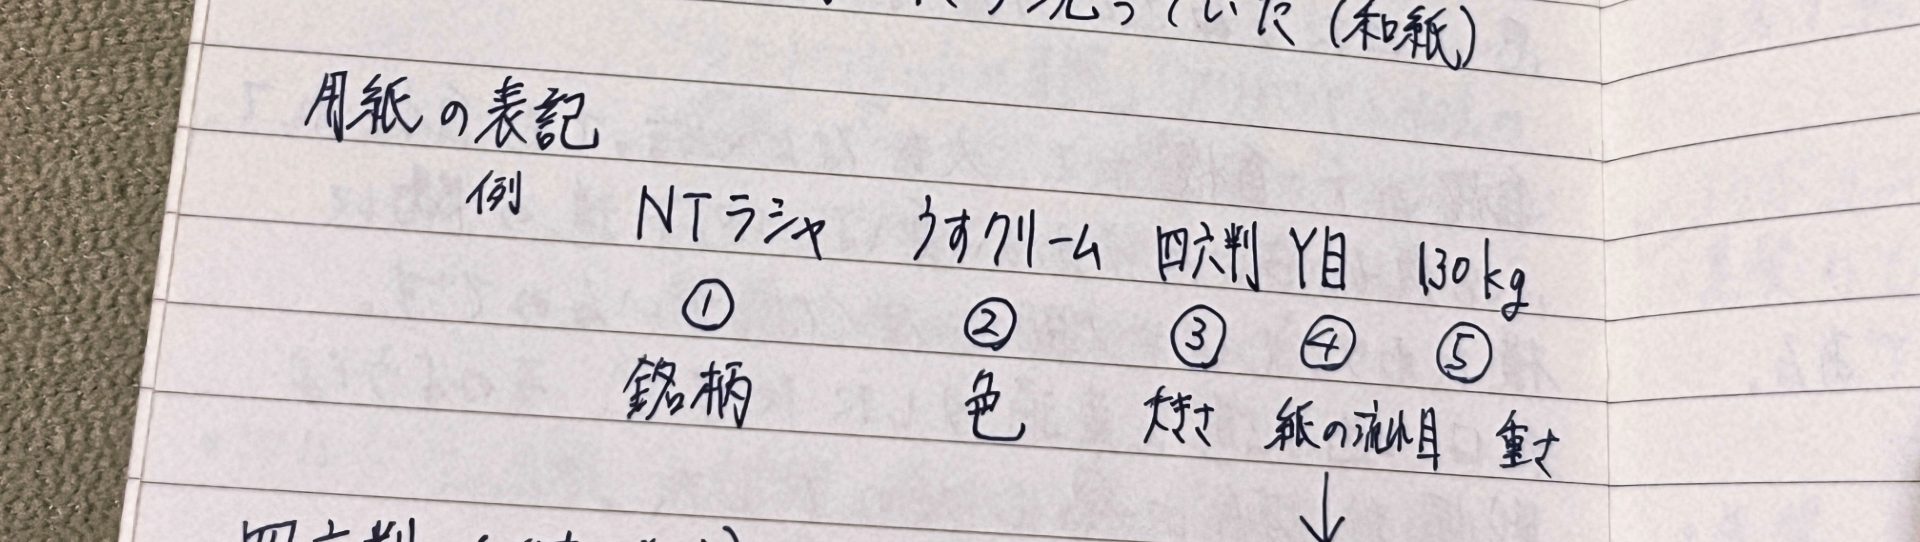 っていた（和紙）
用紙の表記
例 NTラシャ うすクリーム 四六判 Y目 130kg
① ② ③ ④ ⑤
銘柄 色 大きさ 紙の流れ目 重さ
↓
四六判